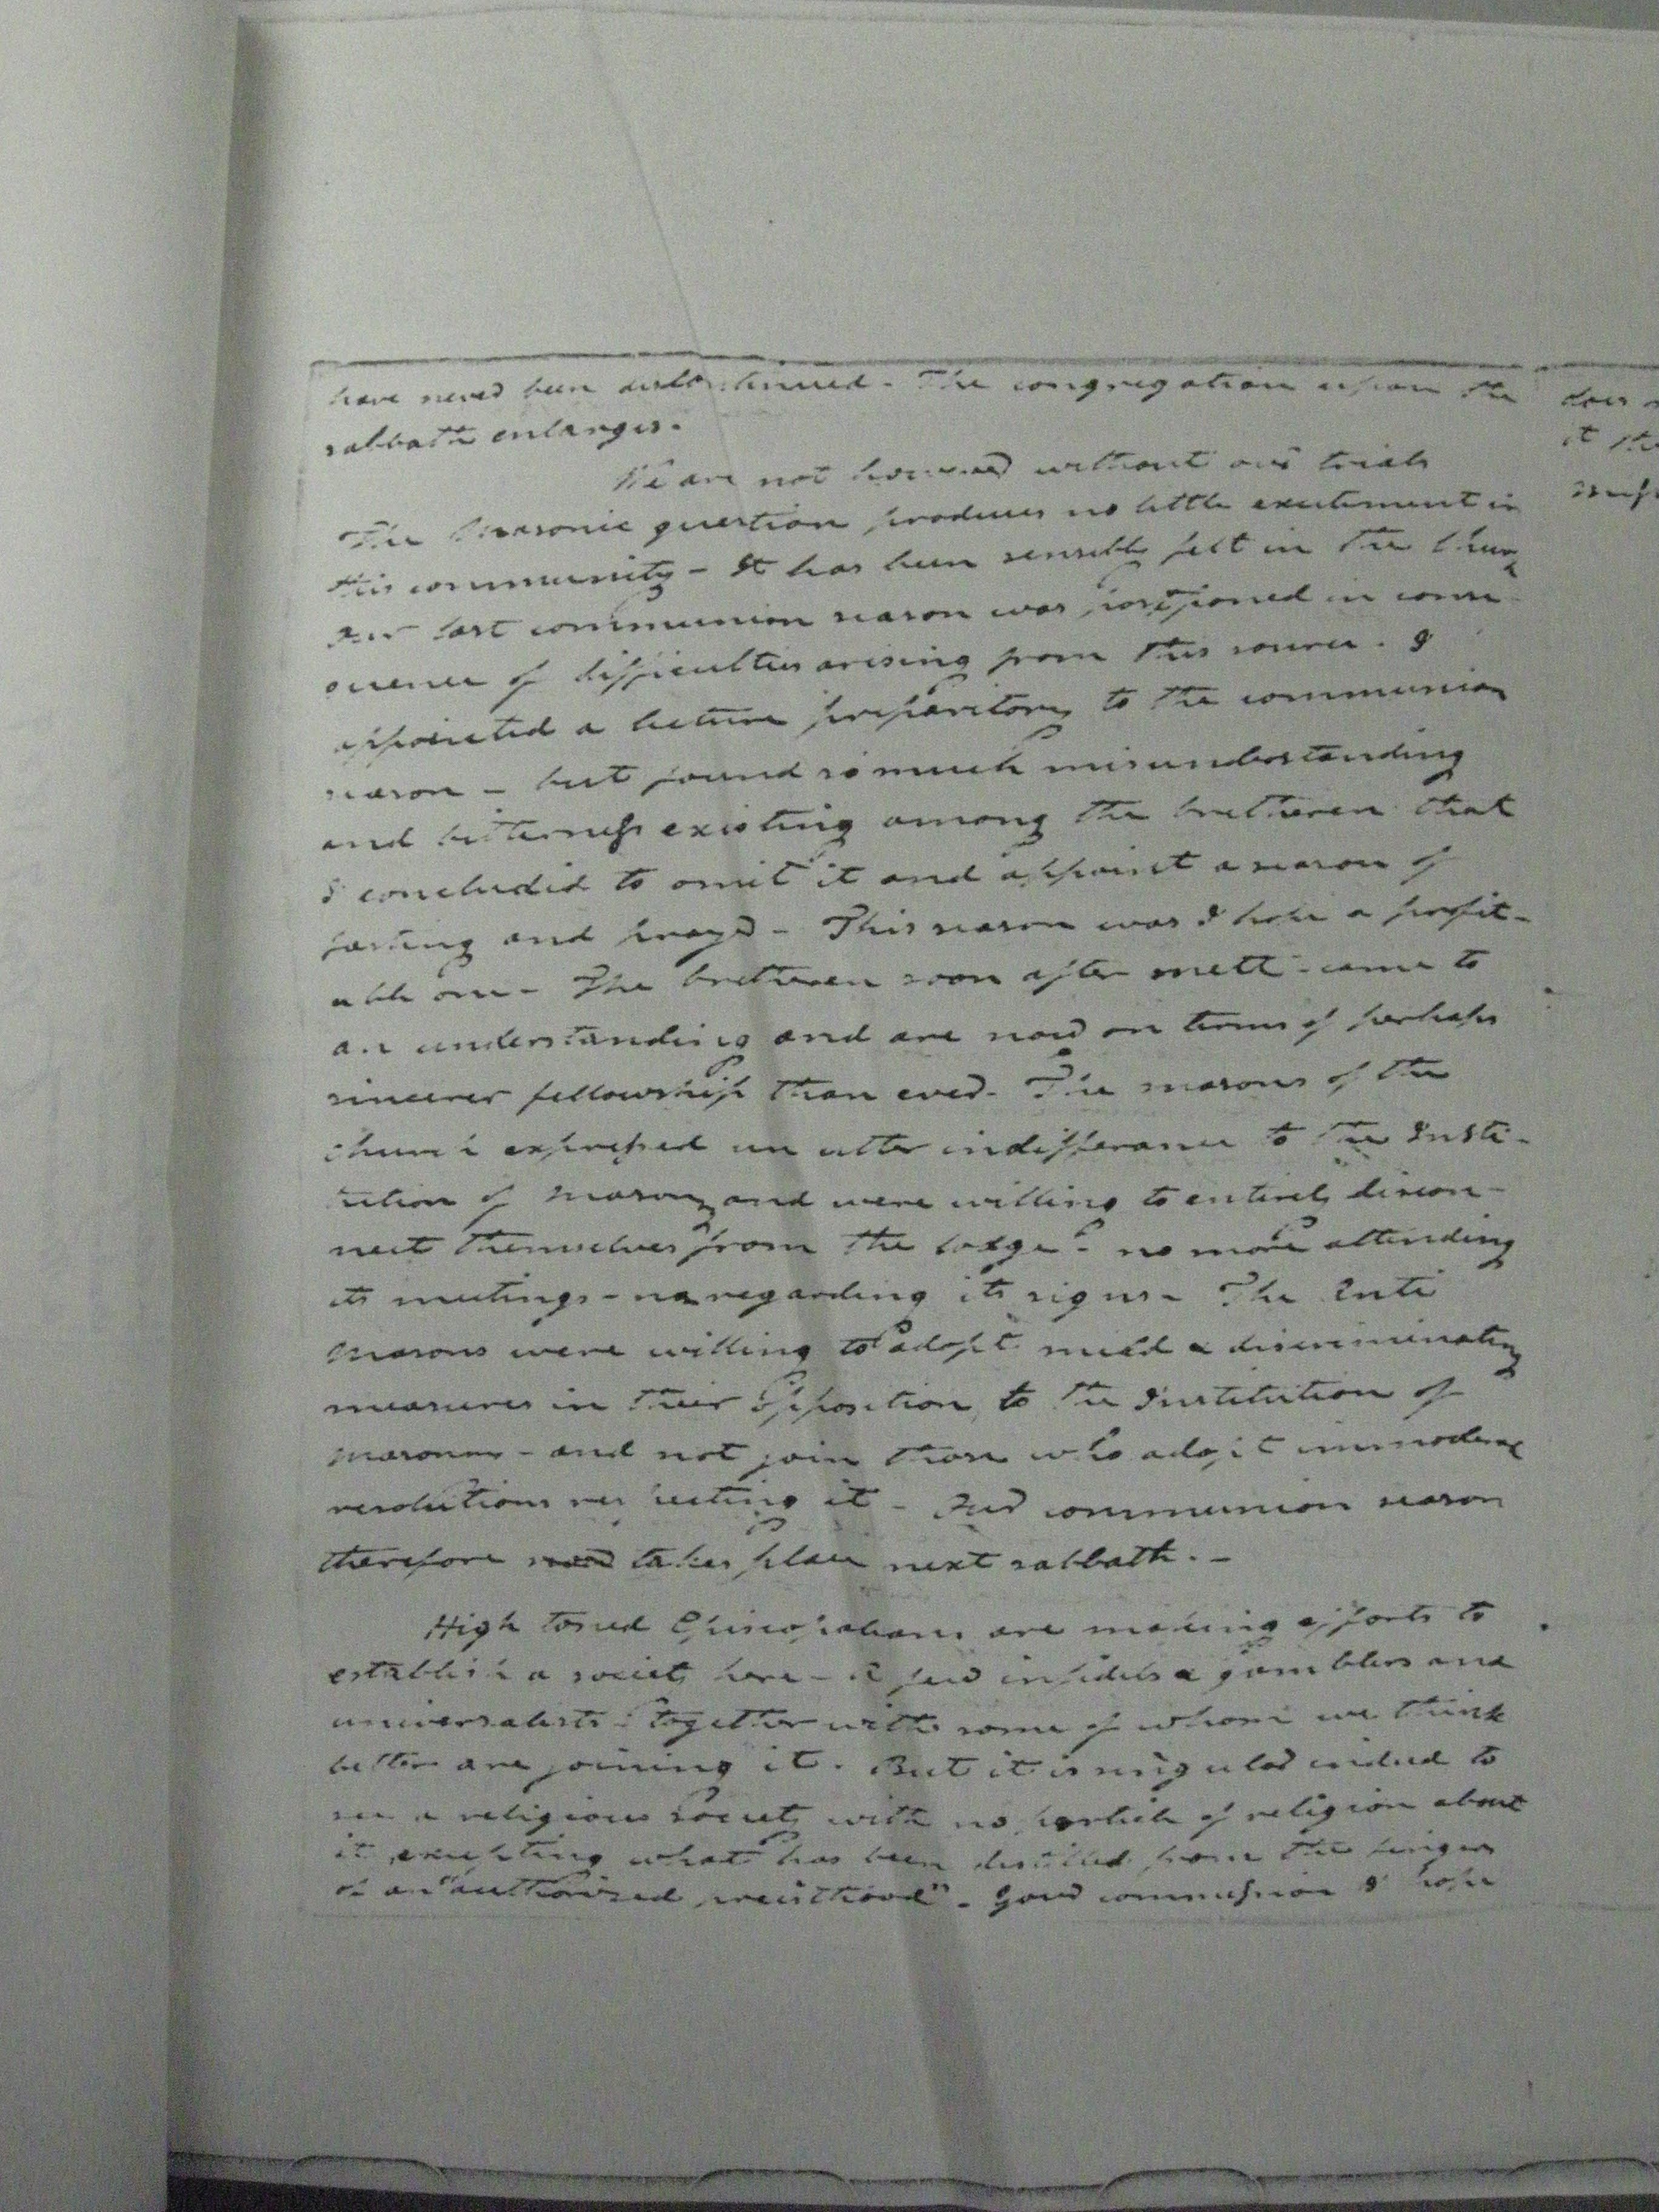 have never been discontinued. The congregation upon the
sabbath enlarges.
We are not however without our trials
The Masonic question produces no little excitement in
this community - It has been sensibly felt in the
Our last communion season was postponed in conse
quence of difficulties arising from this source. I
appointed a lecture preparitory to the communion
season - but found so much misunderstanding
and bitterness existing among the bretheren that
I concluded to omit it and appoint a season of
fasting and prayer - This season was I hope a profit-
able one - The bretheren soon after mett - came to
an understanding and are now on terms of perhaps
sincerer fellowship than ever. The masons of the
church expressed an utter indifferance to the Insti-
tution of masonry and were willing to entirely discon-
nect themselves from the lodge - no more attending
its meetings - no regarding its signs - The Anti
Masons were willing to adopt mild & discriminating
measures in their opposition to the Institution of
masonry - and not join those who adopt immoderate
resolutions respecting it - Our communion season
therefore now takes place next sabbath. -
High toned Episcopalians are making efforts to
establish a society here - A few infidels & gamblers and
universalists together with some of whom we think
better are joining it. But it is singular indeed to
see a religious society with no particle of religion about
it excepting what has been distilled from the fingers
of an "authorized preisthood". Good commission I hope
does
it the